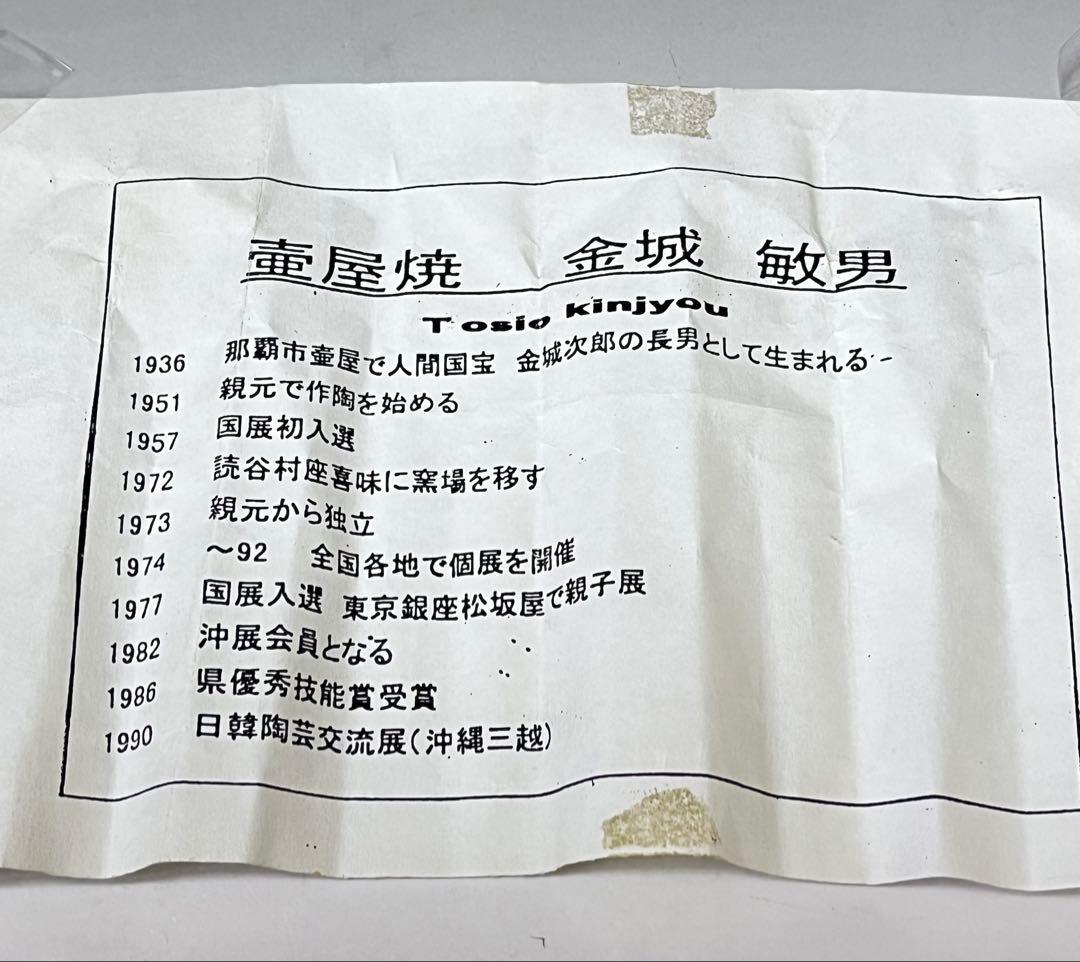 壷屋焼　金城　敏男
Tosio kinjyou
1936 那覇市壷屋で人間国宝　金城次郎の長男として生まれる
1951 親元で作陶を始める
1957 国展初入選
1972 読谷村座喜味に窯場を移す
1973 親元から独立
1974 ～92　全国各地で個展を開催
1977 国展入選　東京銀座松坂屋で親子展
1982 沖展会員となる
1986 県優秀技能賞受賞
1990 日韓陶芸交流展(沖縄三越)